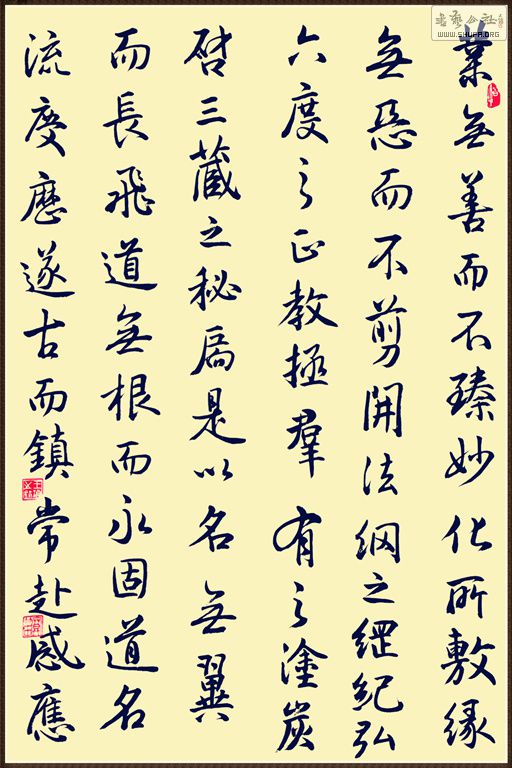 業無善而不臻妙化所敷緣
無惡而不剪開法網之綱紀弘
六度之正教拯群有之塗炭
啓三藏之秘扃是以名無翼
而長飛道無根而永固道名
流慶歷遂古而鎮常赴感應
書藝公社
WWW.SHUFA.ORG